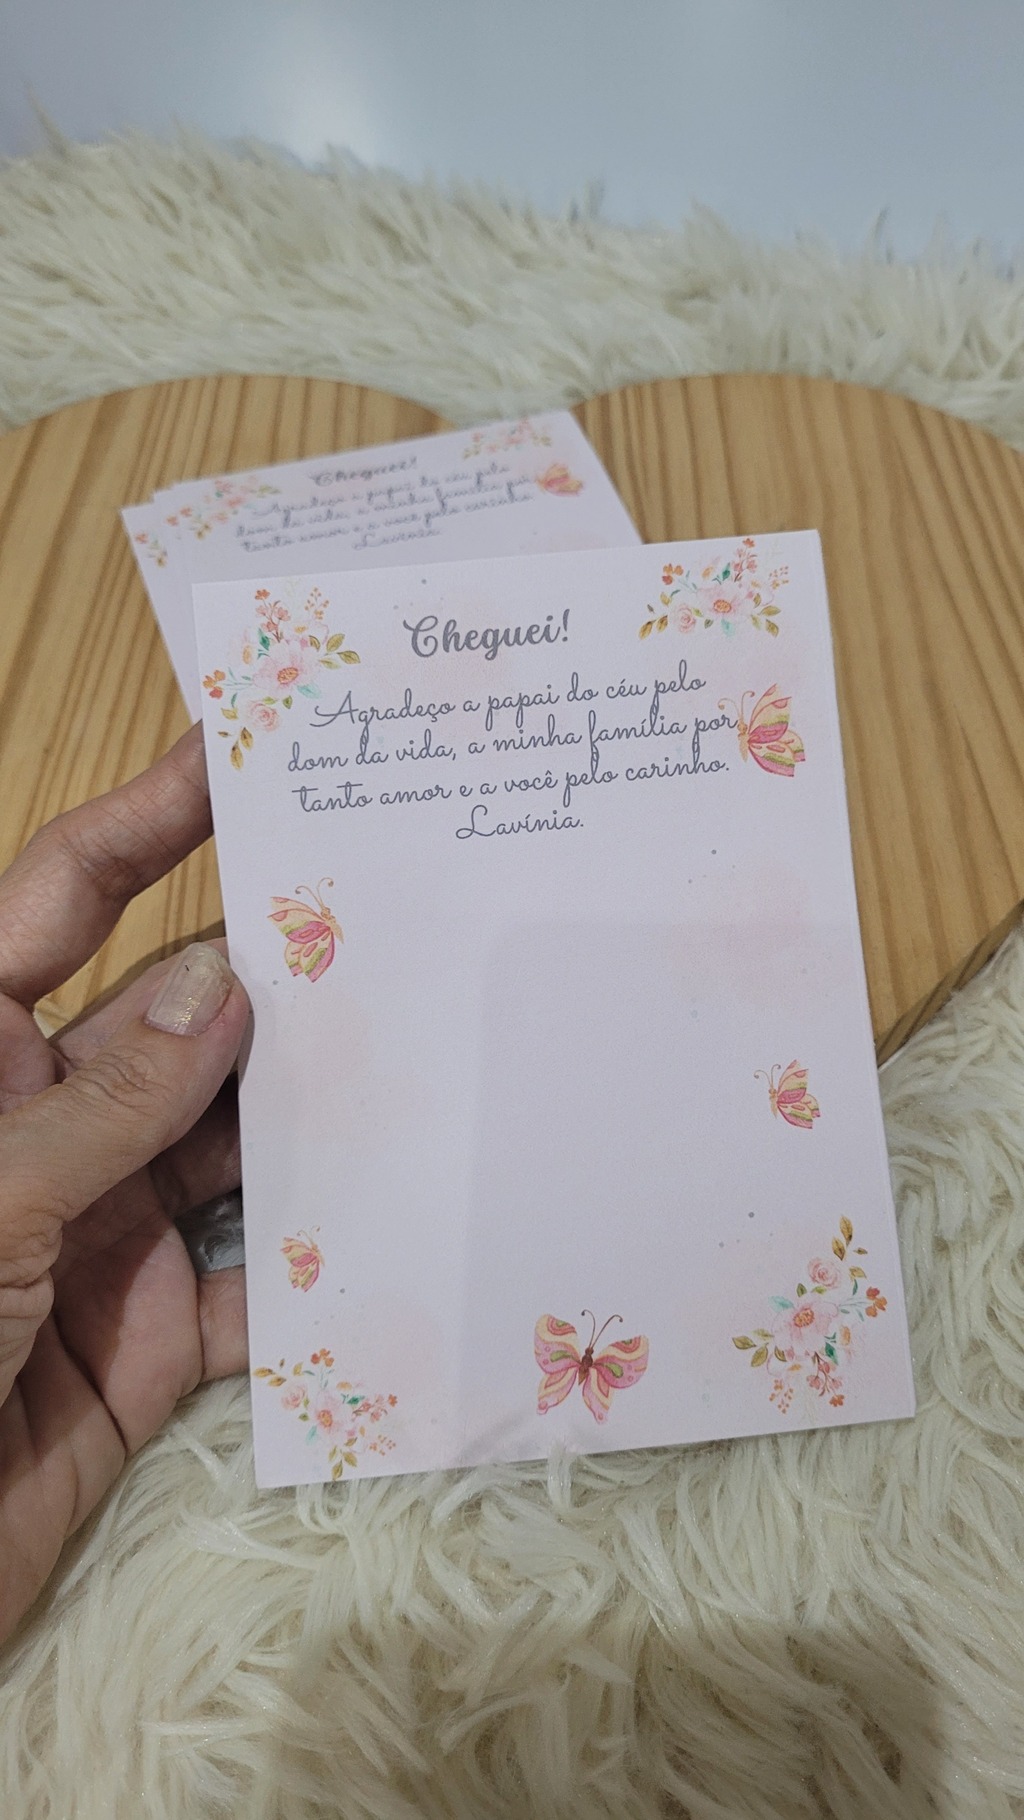 Cheguei!
Agradeço a papai do céu pelo
dom da vida, a minha família por
tanto amor e a você pelo carinho.
Lavínia.
Cheguei!
Agradeço a papai do céu pelo
dom da vida, a minha família por
tanto amor e a você pelo carinho.
Lavínia.